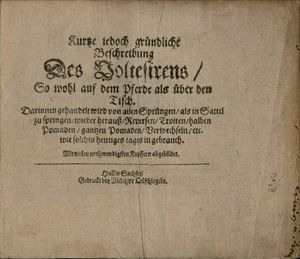 Kurtze iedoch gründliche
Beschreibung
Des Voltesirens /
So wohl auf dem Pferde als über den
Tisch.
Darinnen gehandelt wird von allen Sprüngen / als in Sattel
zu springen / wieder herauß / Reversen / Croiten / halben
Pomaden / gantzen Pomaden / Verwechseln / etc.
wie solches heutiges tages in gebrauch.
Mit vielen nothwendigsten Kupffern abgebildet.
Hall in Sachsen /
Gedruckt bey Melchior Oelschlegeln.